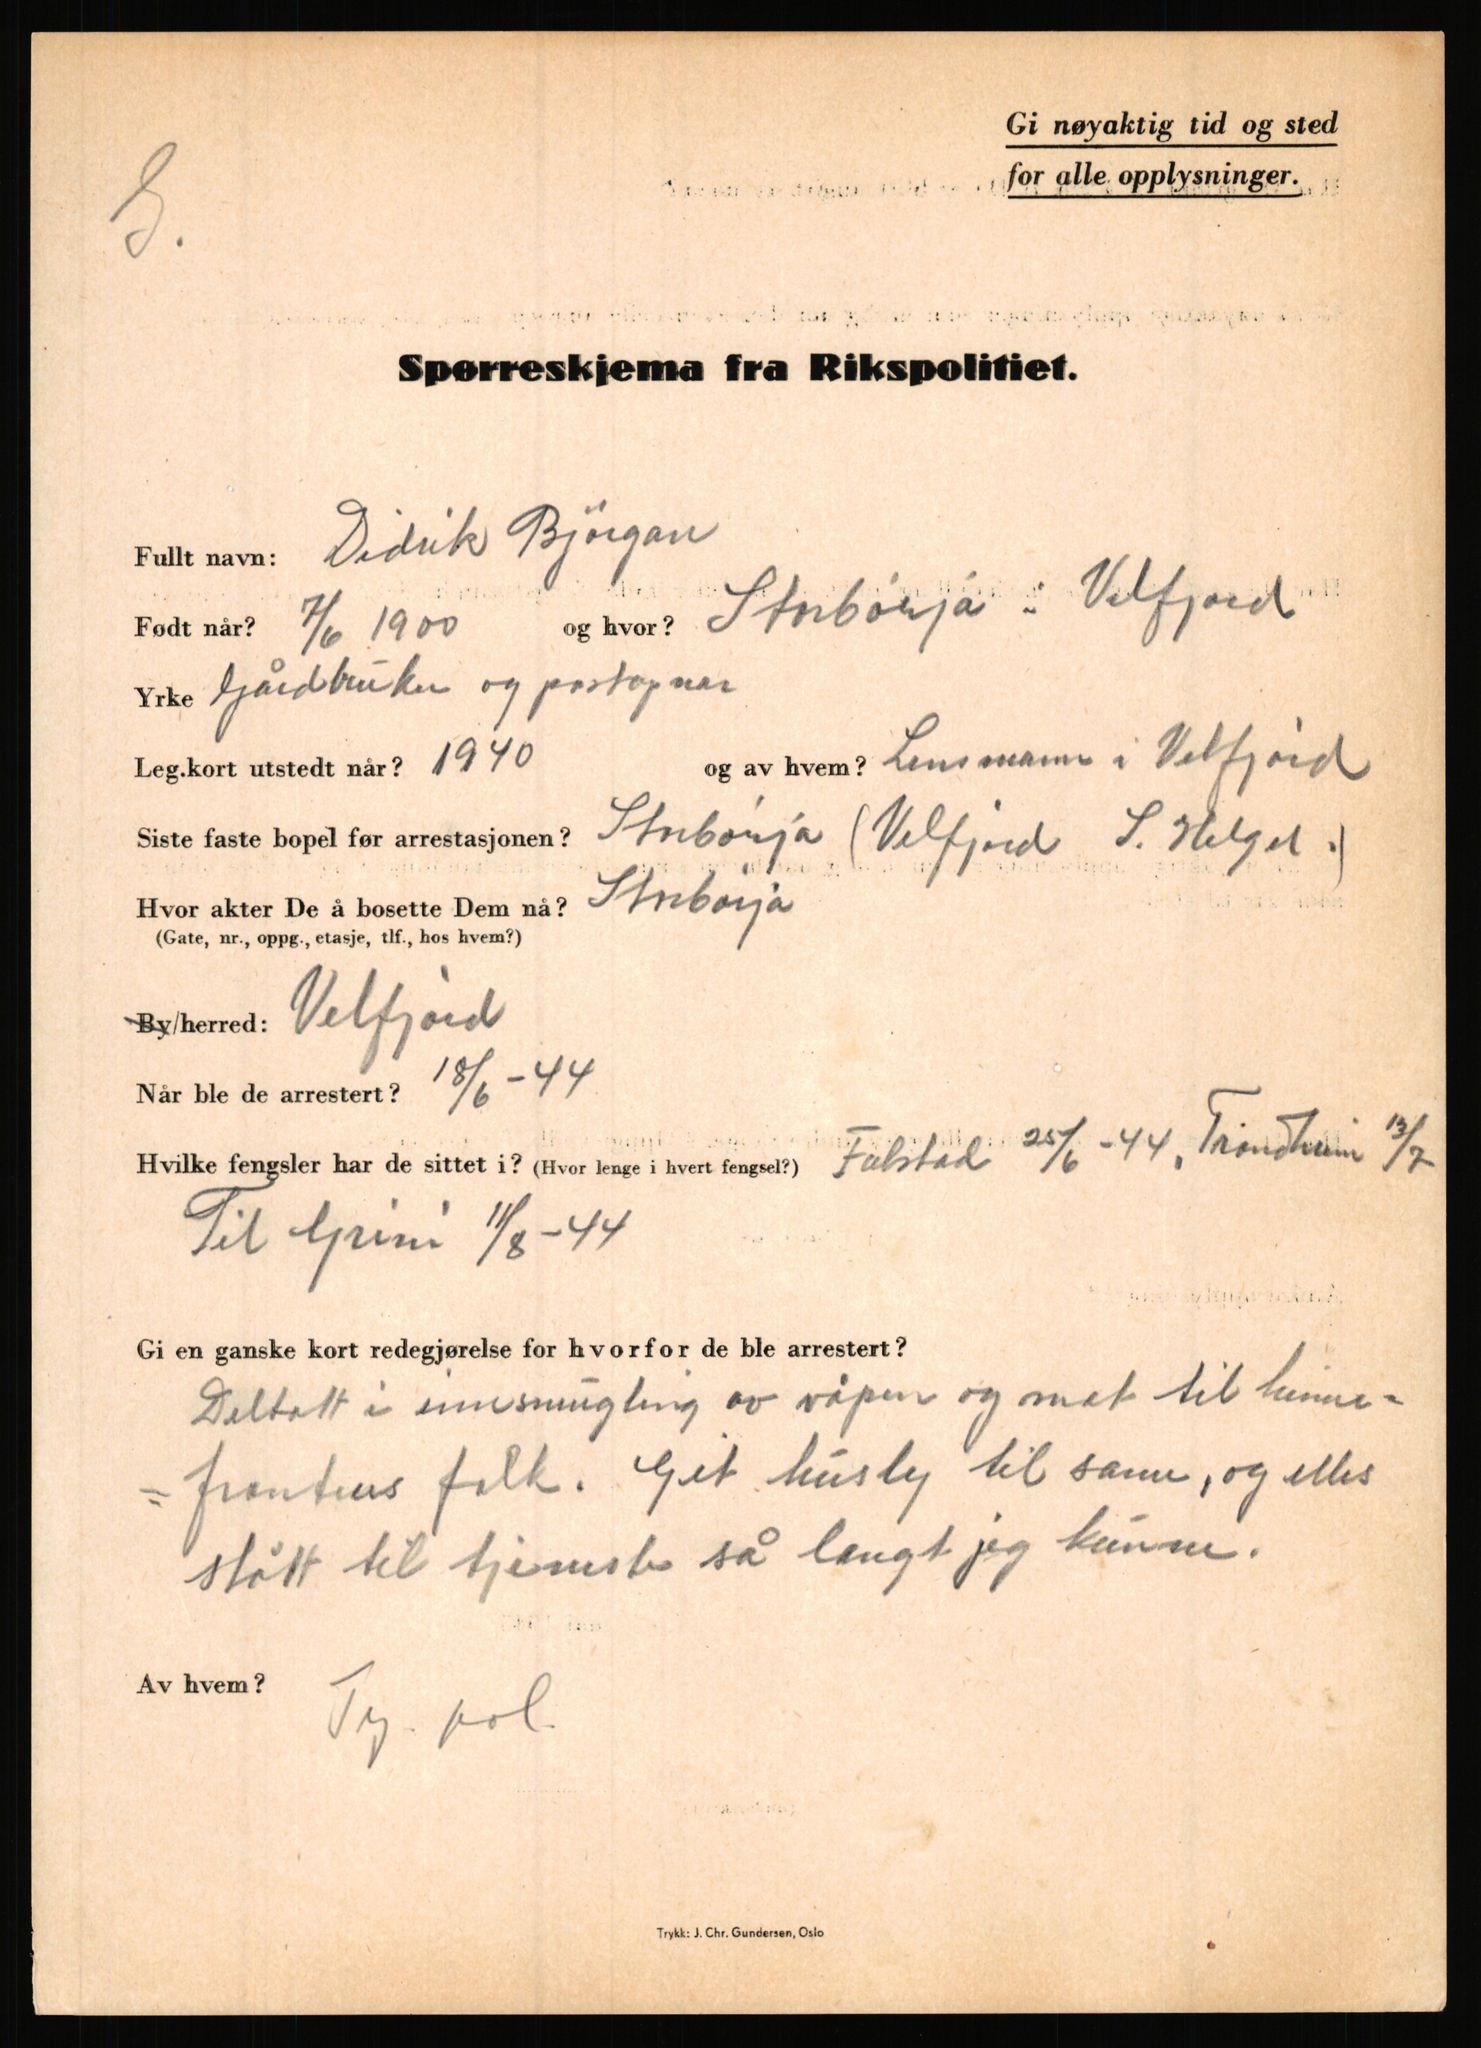 Gi nøyaktig tid og sted
for alle opplysninger.
S.
Spørreskjema fra Rikspolitiet.
Fullt navn: Didrik Björgan
Født når? 7/6 1900 og hvor? Storbörja i Velfjord
Yrke Gårdbruker og postopnar
Leg.kort utstedt når? 1940 og av hvem? Lensmann i Velfjord
Siste faste bopel før arrestasjonen? Storbörja (Velfjord S. Helgel.)
Hvor akter De å bosette Dem nå? Storbörja
(Gate, nr., oppg., etasje, tlf., hos hvem?)
By/herred: Velfjord
Når ble de arrestert? 18/6 -44
Hvilke fengsler har de sittet i? (Hvor lenge i hvert fengsel?) Falstad 25/6 -44, Trondheim 13/7
Til Grini 11/8 -44
Gi en ganske kort redegjørelse for hvorfor de ble arrestert?
Deltatt i innsmugling av våpen og mat til himme-
= frontens folk. Git husly til same, og elles
stått til tjeneste så langt jeg kunne.
Av hvem? Ty. pol.
Trykk: J. Chr. Gundersen, Oslo